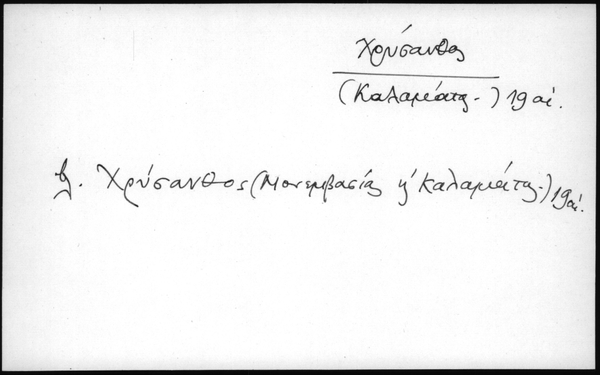 Χρύσανθος
(Καλαμάτας) 19 αἰ.
βλ. Χρύσανθος (Μονεμβασίας ἤ Καλαμάτας) 19 αἰ.